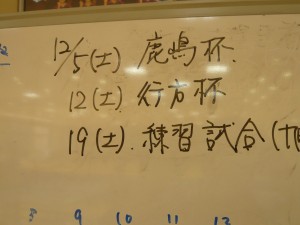 12/5(土) 鹿嶋杯.
12(土). 行方杯
19(土). 練習試合(
8 9 10 11 12